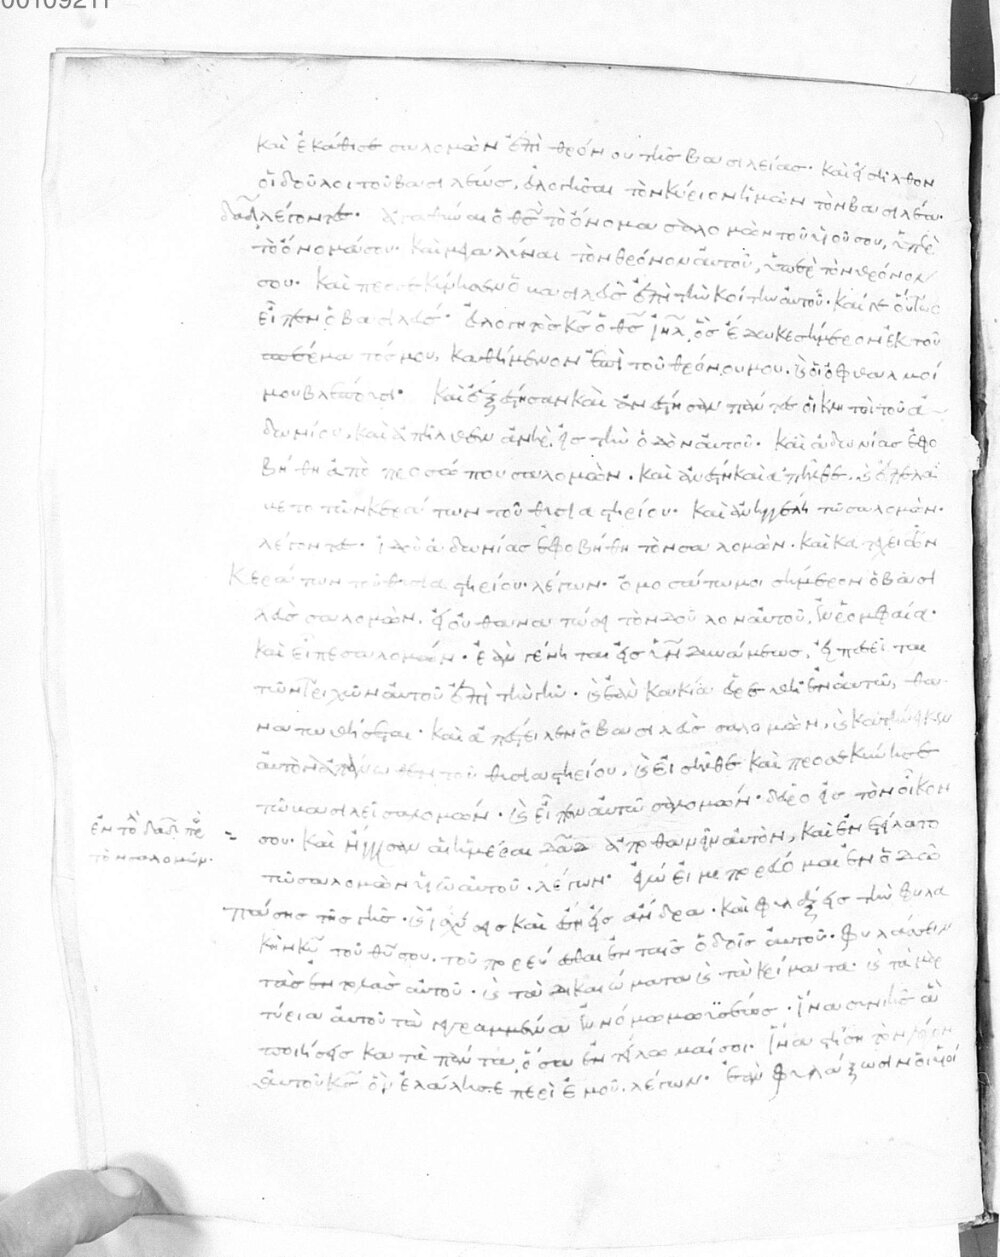 00109211
καὶ ἐκάθισε σαλομὼν ἐπὶ θρόνου τῆς βασιλείας· καὶ εἰσῆλθον
οἱ δοῦλοι τοῦ βασιλέως, εὐλογῆσαι τὸν κύριον ἡμῶν τὸν βασιλέα
δαδ λέγοντες· ἀγαθύναι ὁ θς τὸ ὄνομα σαλομὼν τοῦ υἱοῦ σου, ὑπὲρ
τὸ ὄνομά σου· καὶ μεγαλύναι τὸν θρόνον αὐτοῦ, ὑπὲρ τὸν θρόνον
σου· καὶ προσεκύνησεν ὁ βασιλεὺς ἐπὶ τὴν κοίτην αὐτοῦ· καί γε οὕτως
εἶπεν ὁ βασιλεύς· εὐλογητὸς κς ὁ θς ιηλ, ὃς ἔδωκε σήμερον ἐκ τοῦ
σπέρματός μου, καθήμενον ἐπὶ τοῦ θρόνου μου, καὶ οἱ ὀφθαλμοί
μου βλέπουσι· καὶ ἐξέστησαν καὶ ἀνέστησαν πάντες οἱ κλητοὶ τοῦ ἀ
δωνίου, καὶ ἀπῆλθεν ἀνὴρ εἰς τὴν ὁδὸν αὐτοῦ· καὶ ἀδωνίας ἐφο
βήθη ἀπὸ προσώπου σαλομὼν· καὶ ἀνέστη καὶ ἀπῆλθε, καὶ ἐπελά
βετο τῶν κεράτων τοῦ θυσιαστηρίου· καὶ ἀνηγγέλη τῷ σαλομὼν·
λέγοντες· ἰδοὺ ἀδωνίας ἐφοβήθη τὸν σαλομὼν· καὶ κατέχει τῶν
κεράτων τοῦ θυσιαστηρίου λέγων· ὀμοσάτω μοι σήμερον ὁ βασι
λεὺς σαλομὼν, εἰ οὐ θανατώσει τὸν δοῦλον αὐτοῦ, ἐν ῥομφαία·
καὶ εἶπε σαλομών· ἐὰν γένηται εἰς υἱὸν δυνάμεως, εἰ πεσεῖται
τῶν τριχῶν αὐτοῦ ἐπὶ τὴν γῆν· καὶ ἐὰν κακία εὑρεθῇ ἐν αὐτῷ, θα
νατωθήσεται· καὶ ἀπέστειλεν ὁ βασιλεὺς σαλομὼν, καὶ κατήνεγκεν
αὐτὸν ἀπάνωθεν τοῦ θυσιαστηρίου, καὶ εἰσῆλθε καὶ προσεκύνησε
τῷ βασιλεῖ σαλομών· καὶ εἶπεν αὐτῷ σαλομών· δεῦρο εἰς τὸν οἶκόν
σου· καὶ ἤγγισαν αἱ ἡμέραι δαδ ἀποθανεῖν αὐτὸν, καὶ ἐνετείλατο
τῷ σαλομὼν υἱῷ αὐτοῦ· λέγων· ἐγώ εἰμι πορεύομαι ἐν ὁδῷ
πάσης τῆς γῆς· καὶ ἰσχύσεις καὶ ἔσῃ εἰς ἄνδρα· καὶ φυλάξεις τὴν φυλα
κὴν κυ τοῦ θυ σου· τοῦ πορεύεσθαι ἐν ταῖς ὁδοῖς αὐτοῦ· φυλάσσειν
τὰς ἐντολὰς αὐτοῦ· καὶ τὰ δικαιώματα καὶ τὰ κρίματα· καὶ τὰ μαρ
τύρια αὐτοῦ τὰ γεγραμμένα ἐν νόμω μωϋσέως· ἵνα συνιῇς ἃ
ποιήσεις κατὰ πάντα ὅσα ἐντέλλωμαί σοι· ἵνα στήσῃ τὸν λόγον
αὐτοῦ κς ὃν ἐλάλησε περὶ ἐμοῦ λέγων· ἐὰν φυλάξωσιν οἱ υἱοί
ἐντολαὶ δαδ πρὸς
τὸν σαλομών·